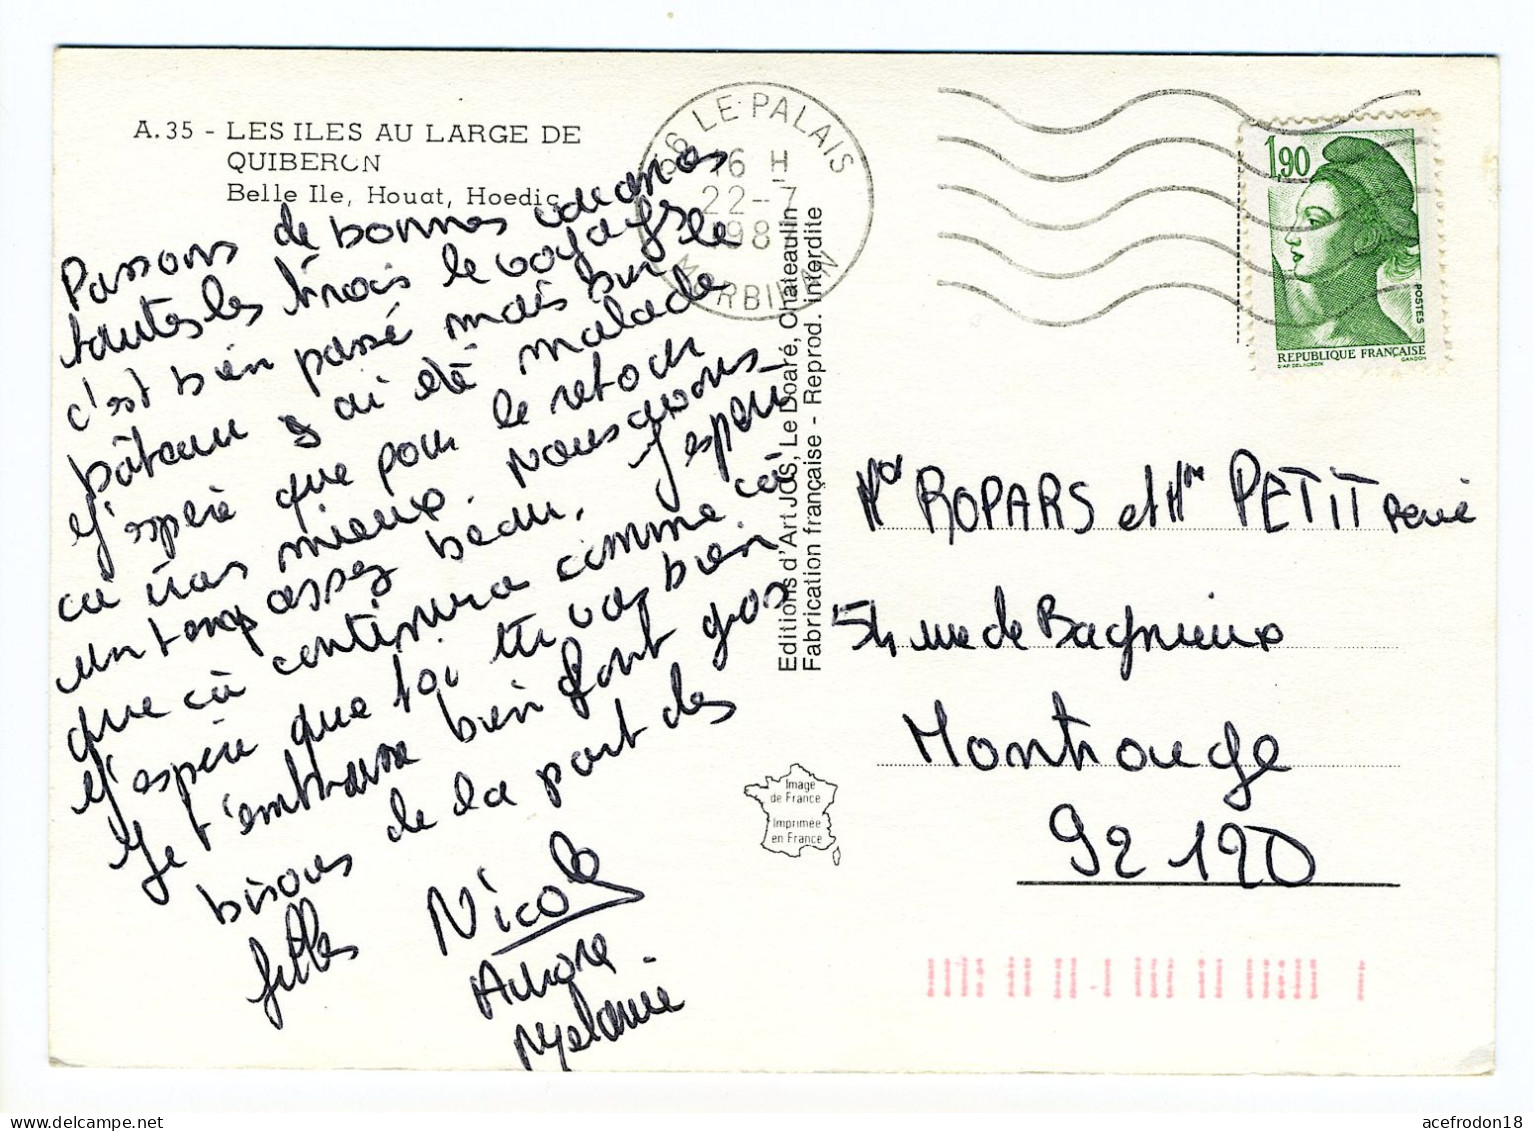 A.35 - LES ILES AU LARGE DE
QUIBERON
Belle Ile, Houat, Hoedic
56 LE PALAIS
16 H
22-7
198
MORBIHAN
1,90
POSTES
REPUBLIQUE FRANÇAISE
D'AP. DELACROIX
GANDON
Passons de bonnes vacances
toutes les trois le voyage
c'est bien passé mais sur le
bâteau j'ai été malade
J'espère que pour le retour
ça iras mieux. Nous avons
un temps assez beau, J'espère
que ça continura comme ça
J'espère que toi tu vas bien.
Je t'embrasse bien font gros
bisous de la part des
filles Nicole
Aurore
Mélanie
Editions d'Art JOS, Le Doaré, Chateaulin
Fabrication française - Reprod. interdite
Image
de France
Imprimée
en France
ROPARS et Mr PETIT René
54 rue de Bagnieux
Montrouge
92120
acefrodon18